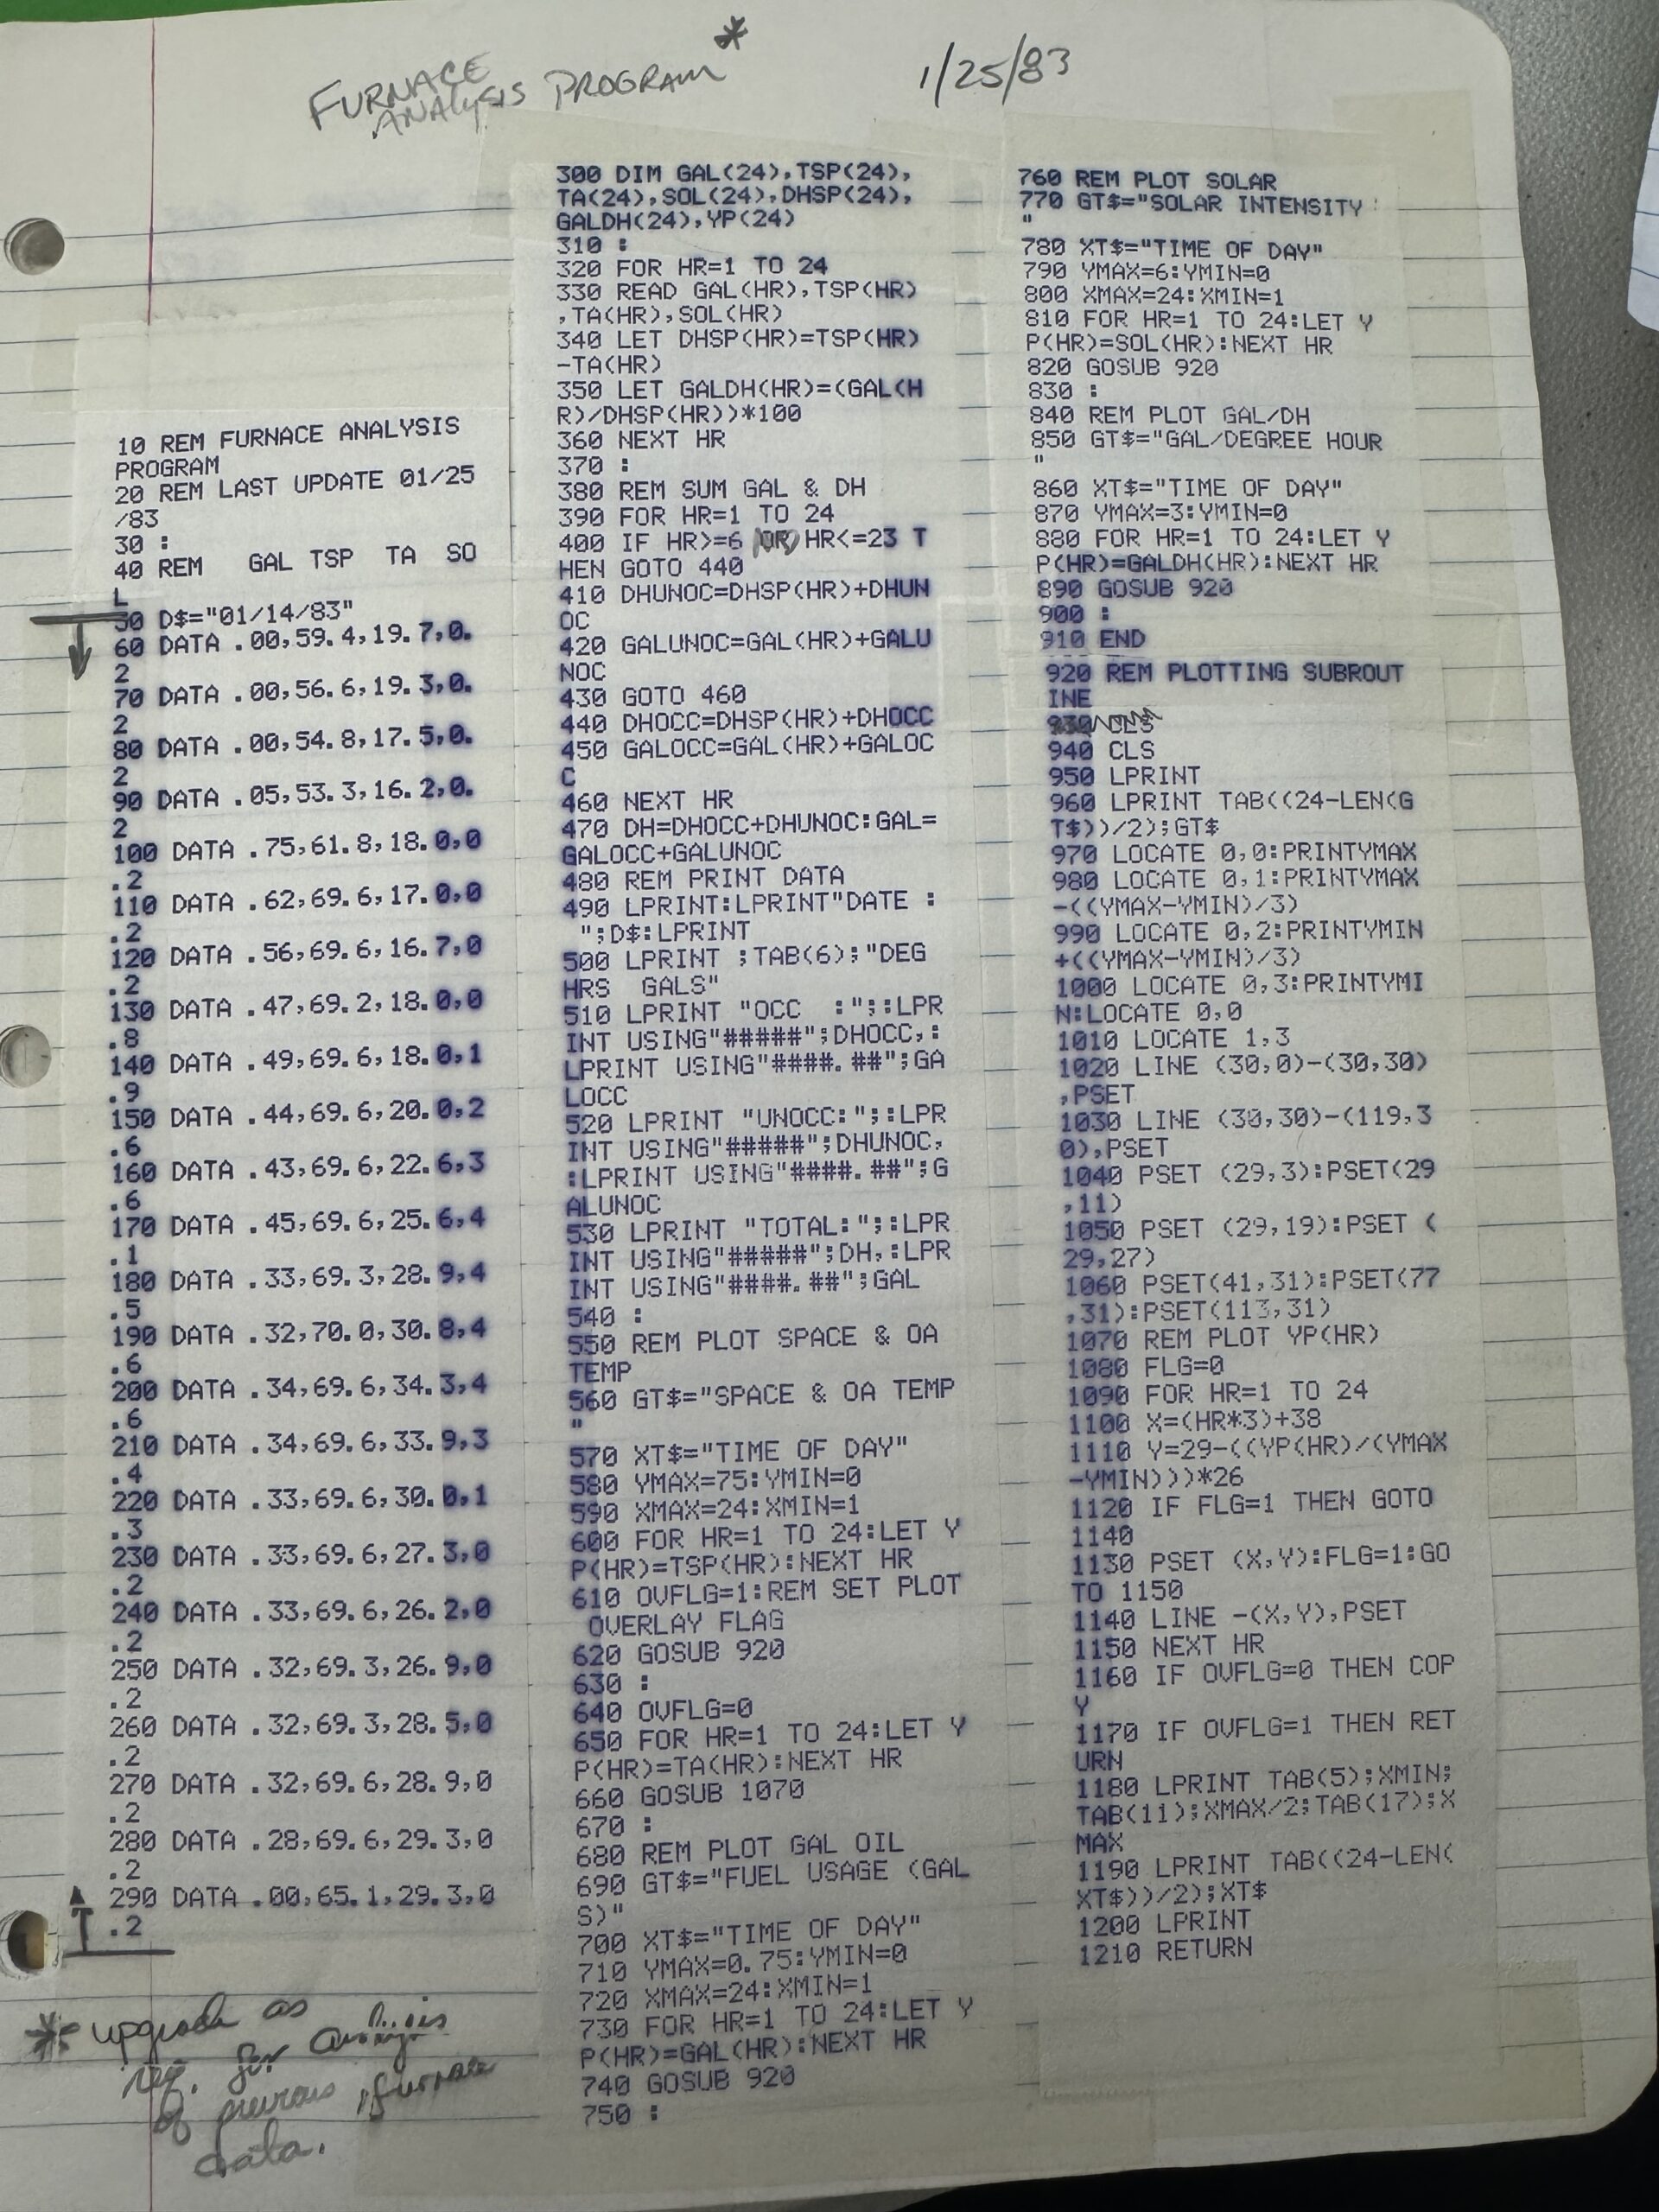 FURNACE
ANALYSIS PROGRAM *
1/25/83
10 REM FURNACE ANALYSIS
PROGRAM
20 REM LAST UPDATE 01/25
/83
30 :
40 REM   GAL TSP  TA  SO
L
50 D$="01/14/83"
60 DATA .00,59.4,19.7,0.
2
70 DATA .00,56.6,19.3,0.
2
80 DATA .00,54.8,17.5,0.
2
90 DATA .05,53.3,16.2,0.
2
100 DATA .75,61.8,18.0,0
.2
110 DATA .62,69.6,17.0,0
.2
120 DATA .56,69.6,16.7,0
.2
130 DATA .47,69.2,18.0,0
.8
140 DATA .49,69.6,18.0,1
.9
150 DATA .44,69.6,20.0,2
.6
160 DATA .43,69.6,22.6,3
.6
170 DATA .45,69.6,25.6,4
.1
180 DATA .33,69.3,28.9,4
.5
190 DATA .32,70.0,30.8,4
.6
200 DATA .34,69.6,34.3,4
.6
210 DATA .34,69.6,33.9,3
.4
220 DATA .33,69.6,30.0,1
.3
230 DATA .33,69.6,27.3,0
.2
240 DATA .33,69.6,26.2,0
.2
250 DATA .32,69.3,26.9,0
.2
260 DATA .32,69.3,28.5,0
.2
270 DATA .32,69.6,28.9,0
.2
280 DATA .28,69.6,29.3,0
.2
290 DATA .00,65.1,29.3,0
.2
* upgrade as
req. for analysis
of previous furnace
data.
300 DIM GAL(24),TSP(24),
TA(24),SOL(24),DHSP(24),
GALDH(24),YP(24)
310 :
320 FOR HR=1 TO 24
330 READ GAL(HR),TSP(HR)
,TA(HR),SOL(HR)
340 LET DHSP(HR)=TSP(HR)
-TA(HR)
350 LET GALDH(HR)=(GAL(H
R)/DHSP(HR))*100
360 NEXT HR
370 :
380 REM SUM GAL & DH
390 FOR HR=1 TO 24
400 IF HR>=6 OR HR<=23 T
HEN GOTO 440
410 DHUNOC=DHSP(HR)+DHUN
OC
420 GALUNOC=GAL(HR)+GALU
NOC
430 GOTO 460
440 DHOCC=DHSP(HR)+DHOCC
450 GALOCC=GAL(HR)+GALOC
C
460 NEXT HR
470 DH=DHOCC+DHUNOC:GAL=
GALOCC+GALUNOC
480 REM PRINT DATA
490 LPRINT:LPRINT"DATE :
 ";D$:LPRINT
500 LPRINT ;TAB(6);"DEG
HRS  GALS"
510 LPRINT "OCC  :";:LPR
INT USING"#####";DHOCC,:
LPRINT USING"####.##";GA
LOCC
520 LPRINT "UNOCC:";:LPR
INT USING"#####";DHUNOC,
:LPRINT USING"####.##";G
ALUNOC
530 LPRINT "TOTAL:";:LPR
INT USING"#####";DH,:LPR
INT USING"####.##";GAL
540 :
550 REM PLOT SPACE & OA
TEMP
560 GT$="SPACE & OA TEMP
"
570 XT$="TIME OF DAY"
580 YMAX=75:YMIN=0
590 XMAX=24:XMIN=1
600 FOR HR=1 TO 24:LET Y
P(HR)=TSP(HR):NEXT HR
610 OVFLG=1:REM SET PLOT
 OVERLAY FLAG
620 GOSUB 920
630 :
640 OVFLG=0
650 FOR HR=1 TO 24:LET Y
P(HR)=TA(HR):NEXT HR
660 GOSUB 1070
670 :
680 REM PLOT GAL OIL
690 GT$="FUEL USAGE (GAL
S)"
700 XT$="TIME OF DAY"
710 YMAX=0.75:YMIN=0
720 XMAX=24:XMIN=1
730 FOR HR=1 TO 24:LET Y
P(HR)=GAL(HR):NEXT HR
740 GOSUB 920
750 :
760 REM PLOT SOLAR
770 GT$="SOLAR INTENSITY
"
780 XT$="TIME OF DAY"
790 YMAX=6:YMIN=0
800 XMAX=24:XMIN=1
810 FOR HR=1 TO 24:LET Y
P(HR)=SOL(HR):NEXT HR
820 GOSUB 920
830 :
840 REM PLOT GAL/DH
850 GT$="GAL/DEGREE HOUR
"
860 XT$="TIME OF DAY"
870 YMAX=3:YMIN=0
880 FOR HR=1 TO 24:LET Y
P(HR)=GALDH(HR):NEXT HR
890 GOSUB 920
900 :
910 END
920 REM PLOTTING SUBROUT
INE
930 CLS
940 CLS
950 LPRINT
960 LPRINT TAB((24-LEN(G
T$))/2);GT$
970 LOCATE 0,0:PRINTYMAX
980 LOCATE 0,1:PRINTYMAX
-((YMAX-YMIN)/3)
990 LOCATE 0,2:PRINTYMIN
+((YMAX-YMIN)/3)
1000 LOCATE 0,3:PRINTYMI
N:LOCATE 0,0
1010 LOCATE 1,3
1020 LINE (30,0)-(30,30)
,PSET
1030 LINE (30,30)-(119,3
0),PSET
1040 PSET (29,3):PSET(29
,11)
1050 PSET (29,19):PSET (
29,27)
1060 PSET(41,31):PSET(77
,31):PSET(113,31)
1070 REM PLOT YP(HR)
1080 FLG=0
1090 FOR HR=1 TO 24
1100 X=(HR*3)+38
1110 Y=29-((YP(HR)/(YMAX
-YMIN)))*26
1120 IF FLG=1 THEN GOTO
1140
1130 PSET (X,Y):FLG=1:GO
TO 1150
1140 LINE -(X,Y),PSET
1150 NEXT HR
1160 IF OVFLG=0 THEN COP
Y
1170 IF OVFLG=1 THEN RET
URN
1180 LPRINT TAB(5);XMIN;
TAB(11);XMAX/2;TAB(17);X
MAX
1190 LPRINT TAB((24-LEN(
XT$))/2);XT$
1200 LPRINT
1210 RETURN